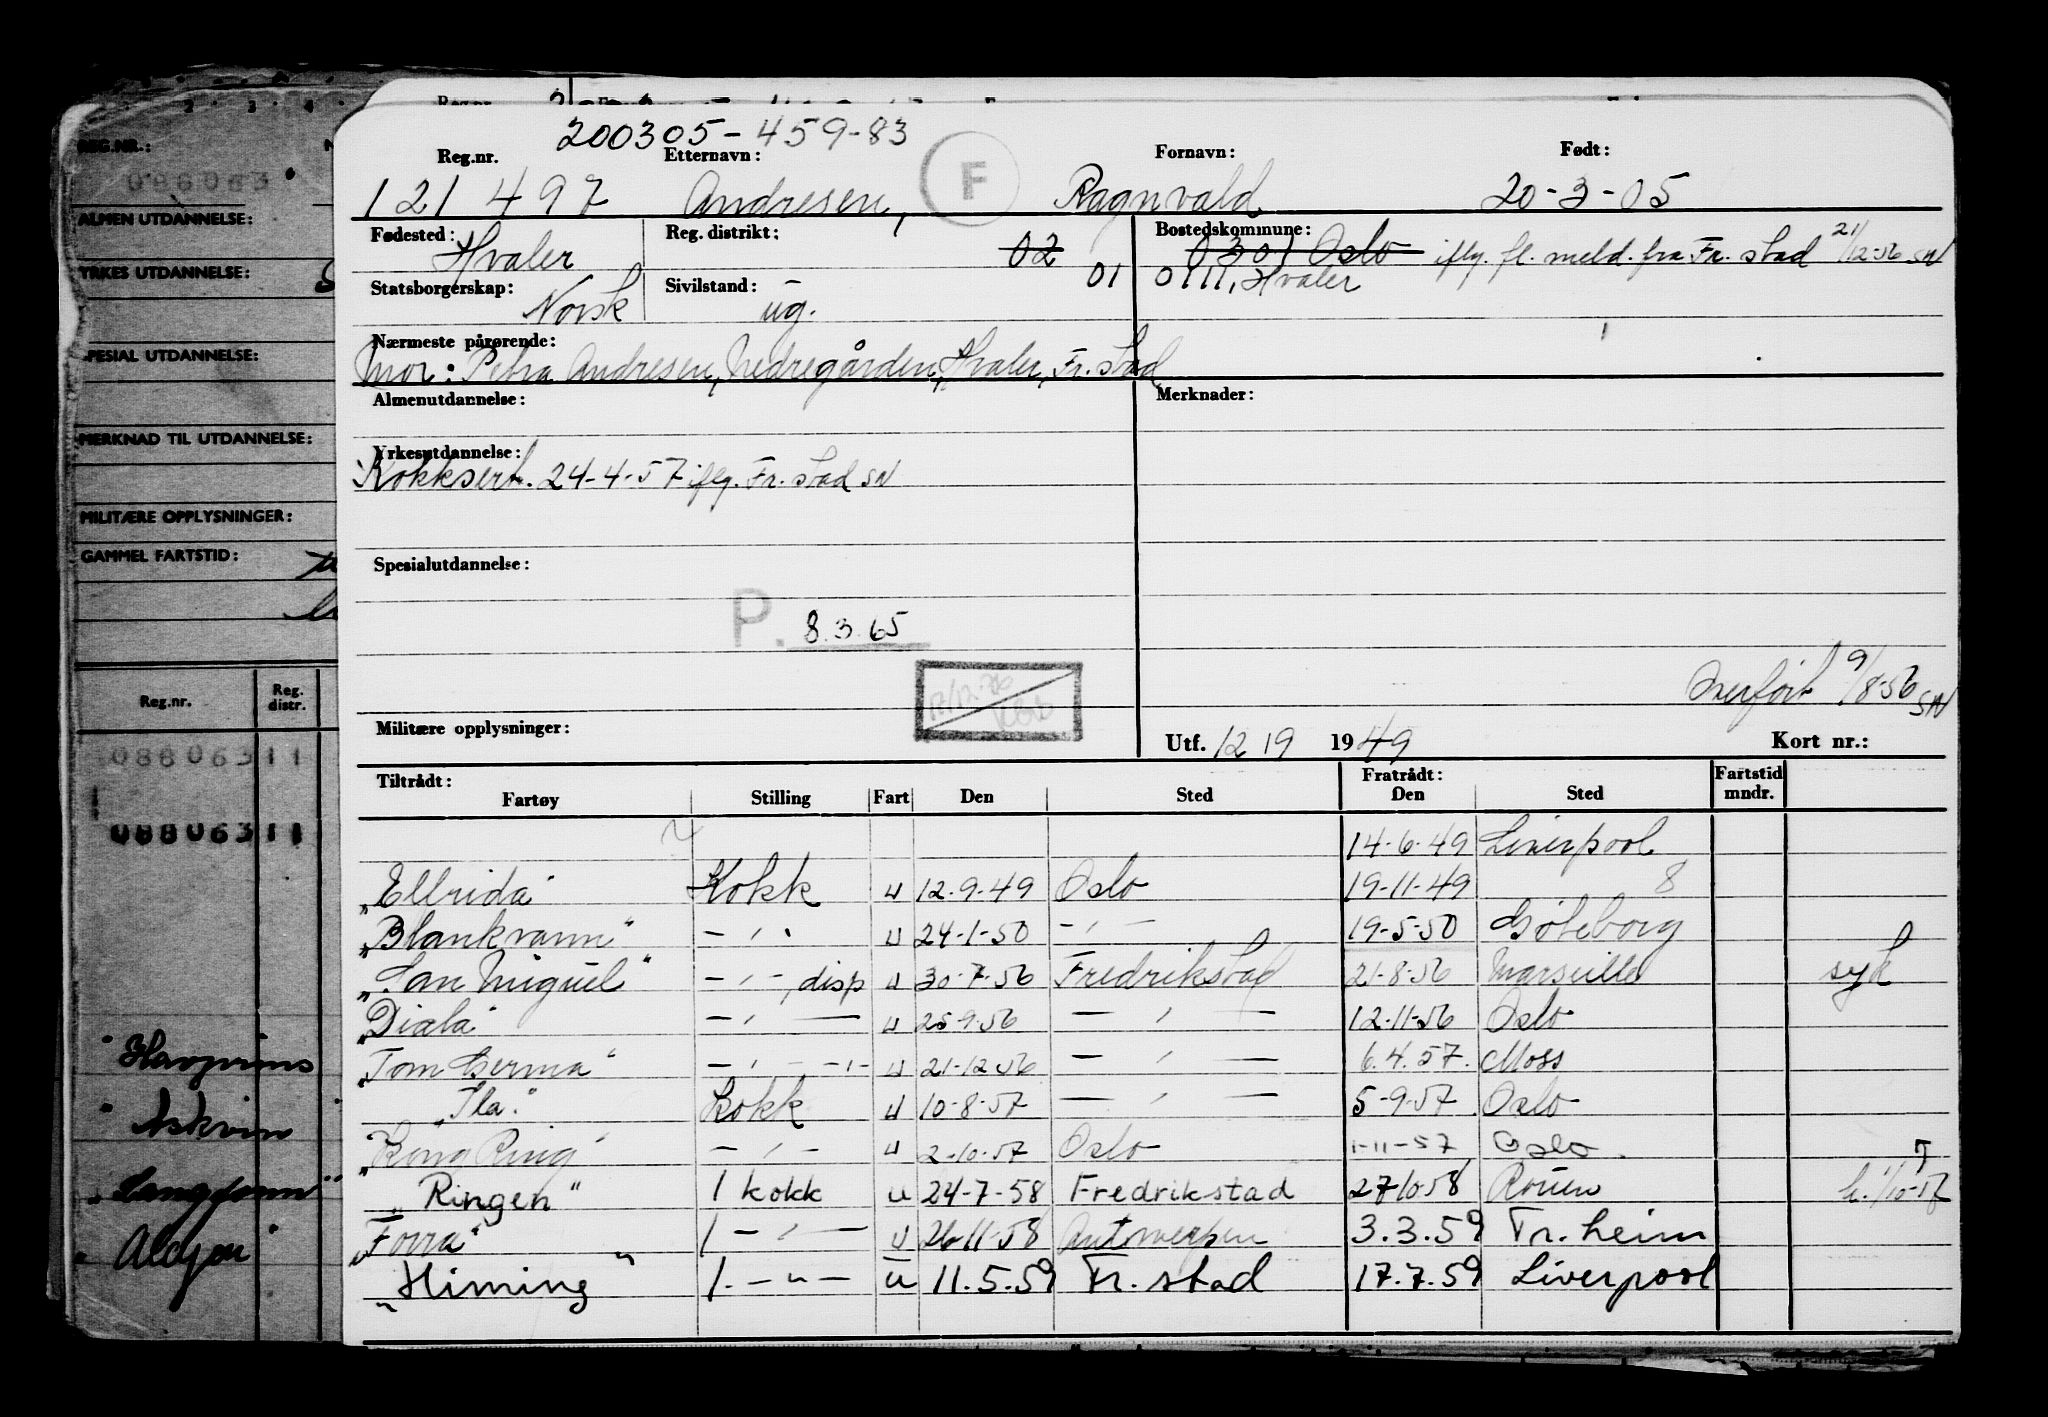 REG.NR.:
086063
ALMEN UTDANNELSE:
YRKES UTDANNELSE:
SPESIAL UTDANNELSE:
MERKNAD TIL UTDANNELSE:
MILITÆRE OPPLYSNINGER:
GAMMEL FARTSTID:
Reg.nr. Reg. distr.
08806311
08806311
"Havprins
"Askvin
"Langfonn"
"Alcyon"
200305-459-83
Reg.nr. Etternavn: F Fornavn: Født:
121 497 Andresen, Ragnvald 20-3-05
Fødested: Hvaler Reg. distrikt: 02 Bostedskommune: 0301 Oslo iflg. fl. meld. fra Fr. stad 21/12-56 SN
Statsborgerskap: Norsk Sivilstand: ug. 01 0111, Hvaler
Nærmeste pårørende:
Mor: Petra Andresen, Nedregården, Hvaler, Fr. stad
Almenutdannelse: Merknader:
Yrkesutdannelse:
Kokksert. 24-4-57 iflg. Fr. stad SN
Spesialutdannelse:
P. 8.3.65
Overført 9/8-56 SN
Militære opplysninger: Utf. 12 19 1949 Kort nr.:
Tiltrådt: Fratrådt: Fartstid
Fartøy Stilling Fart Den Sted Den Sted mndr.
14-6-49 Liverpool
"Elfrida" Kokk u 12-9-49 Oslo 19-11-49 8
"Blankvann" - " - u 24-1-50 - " - 19-5-50 Göteborg
"San Miguel" - " -, disp u 30-7-56 Fredrikstad 21-8-56 Marseille syk
"Diala" - " - u 25-9-56 - " - 12-11-56 Oslo
"Tom Germa" - " - - " - u 21-12-56 - " - 6.4.57. Moss
"Ila" Kokk u 10-8-57 - " - 5-9-57 Oslo
"King Ring" - " - u 2-10-57 Oslo 1-11-57 Oslo.
"Ringen" 1 kokk u 24-7-58 Fredrikstad 27-10-58 Rouen
"Forra" 1 - " - u 26-11-58 Antwerpen 3.3.59 Tr. heim
"Himing" 1. - " - u 11.5.59 Fr. stad 17.7.59 Liverpool